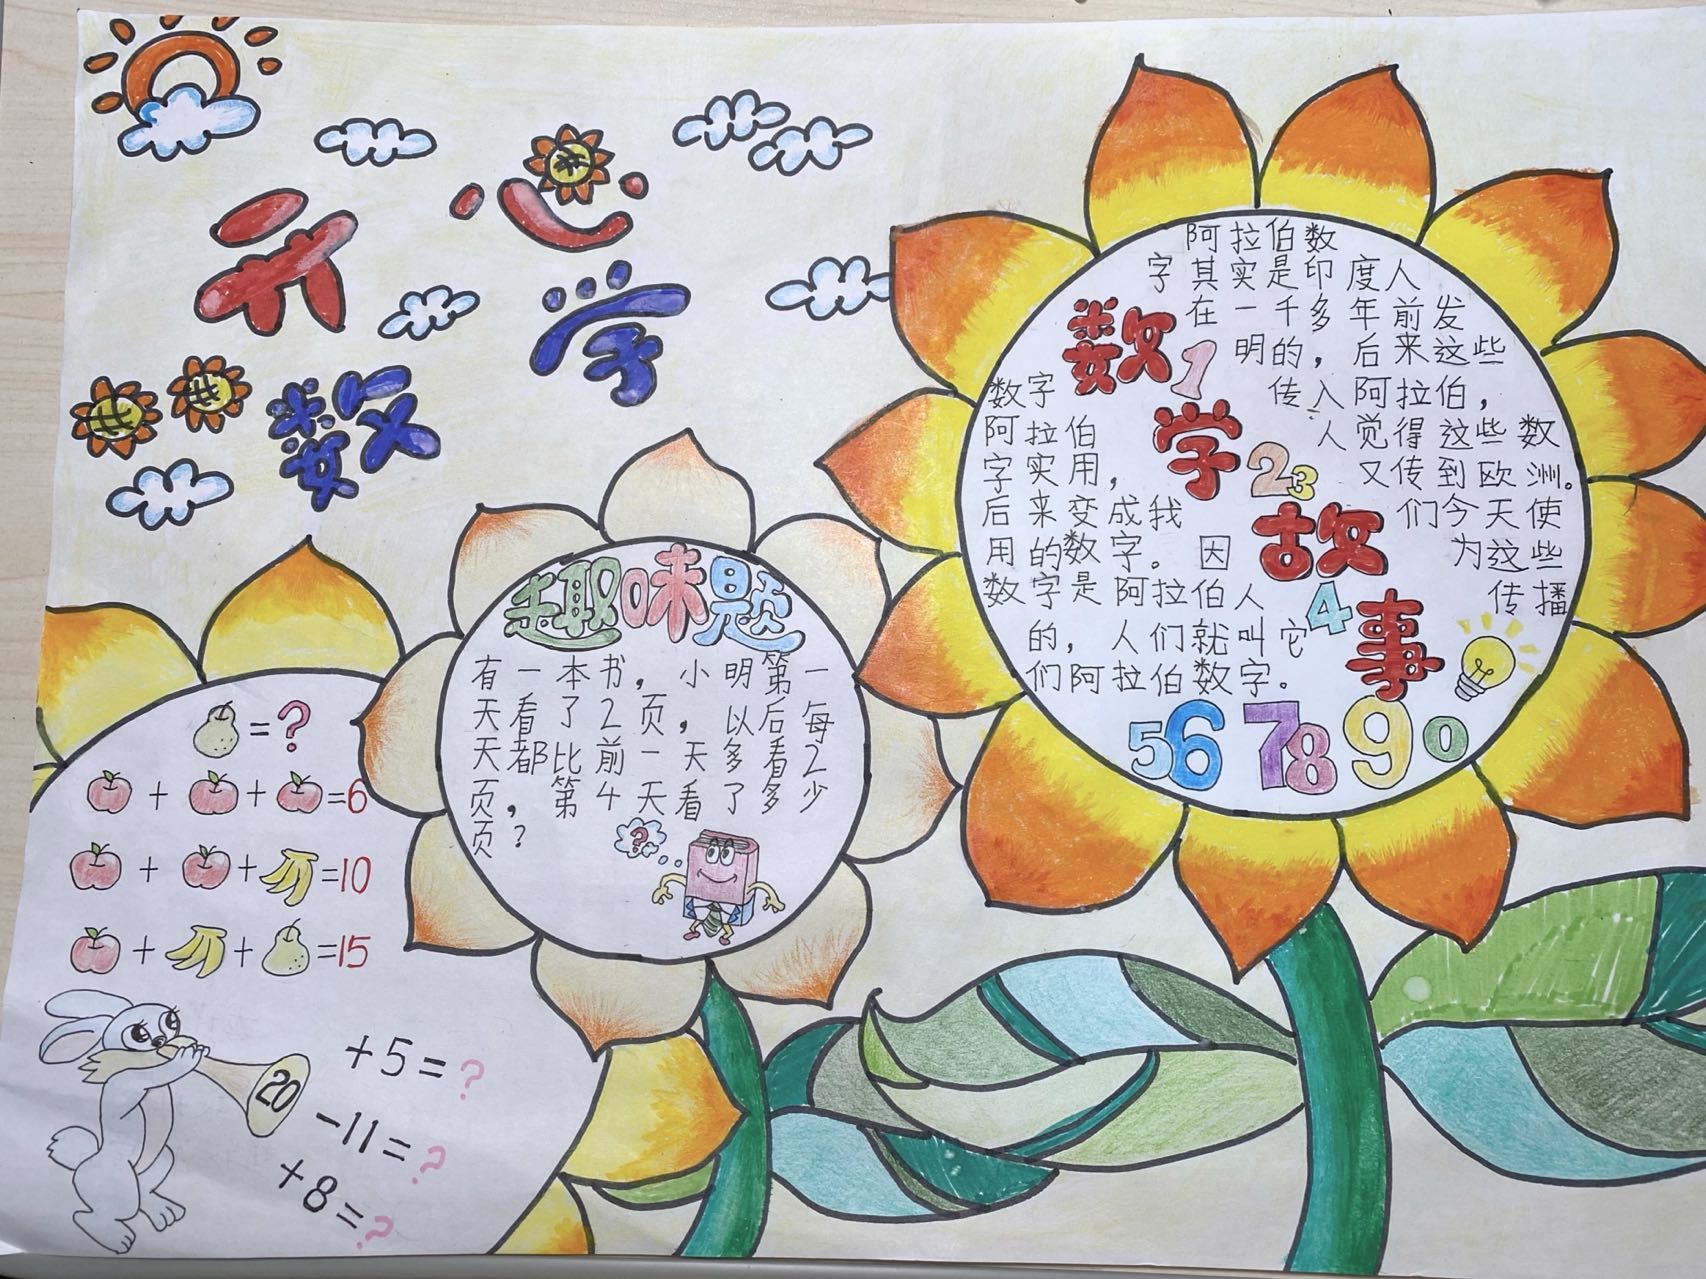 开心
数学
数学故事
1
23
4
567890
阿拉伯数
字其实是印度人
在一千多年前发
明的，后来这些
数字传入阿拉伯，
阿拉伯人觉得这些数
字实用，又传到欧洲。
后来变成我们今天使
用的数字。因为这些
数字是阿拉伯人传播
的，人们就叫它
们阿拉伯数字。
趣味题
有一本书，小明第一
天看了2页，以后每
天都比前一天多看2
页，第4天看了多少
页？
?
=?
+ + =6
+ + =10
+ + =15
20
+5=?
-11=?
+8=?